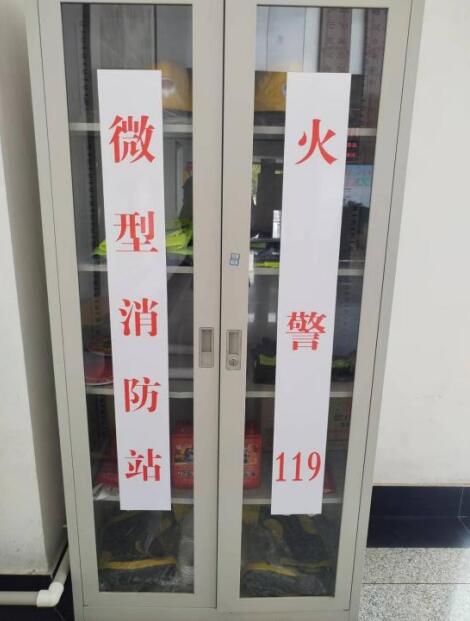 微型消防站
火警119